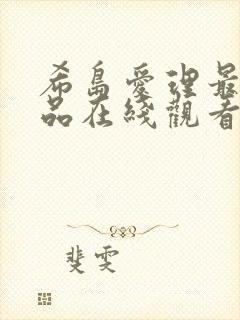 希島愛理最
品在綫觀看
斐雯